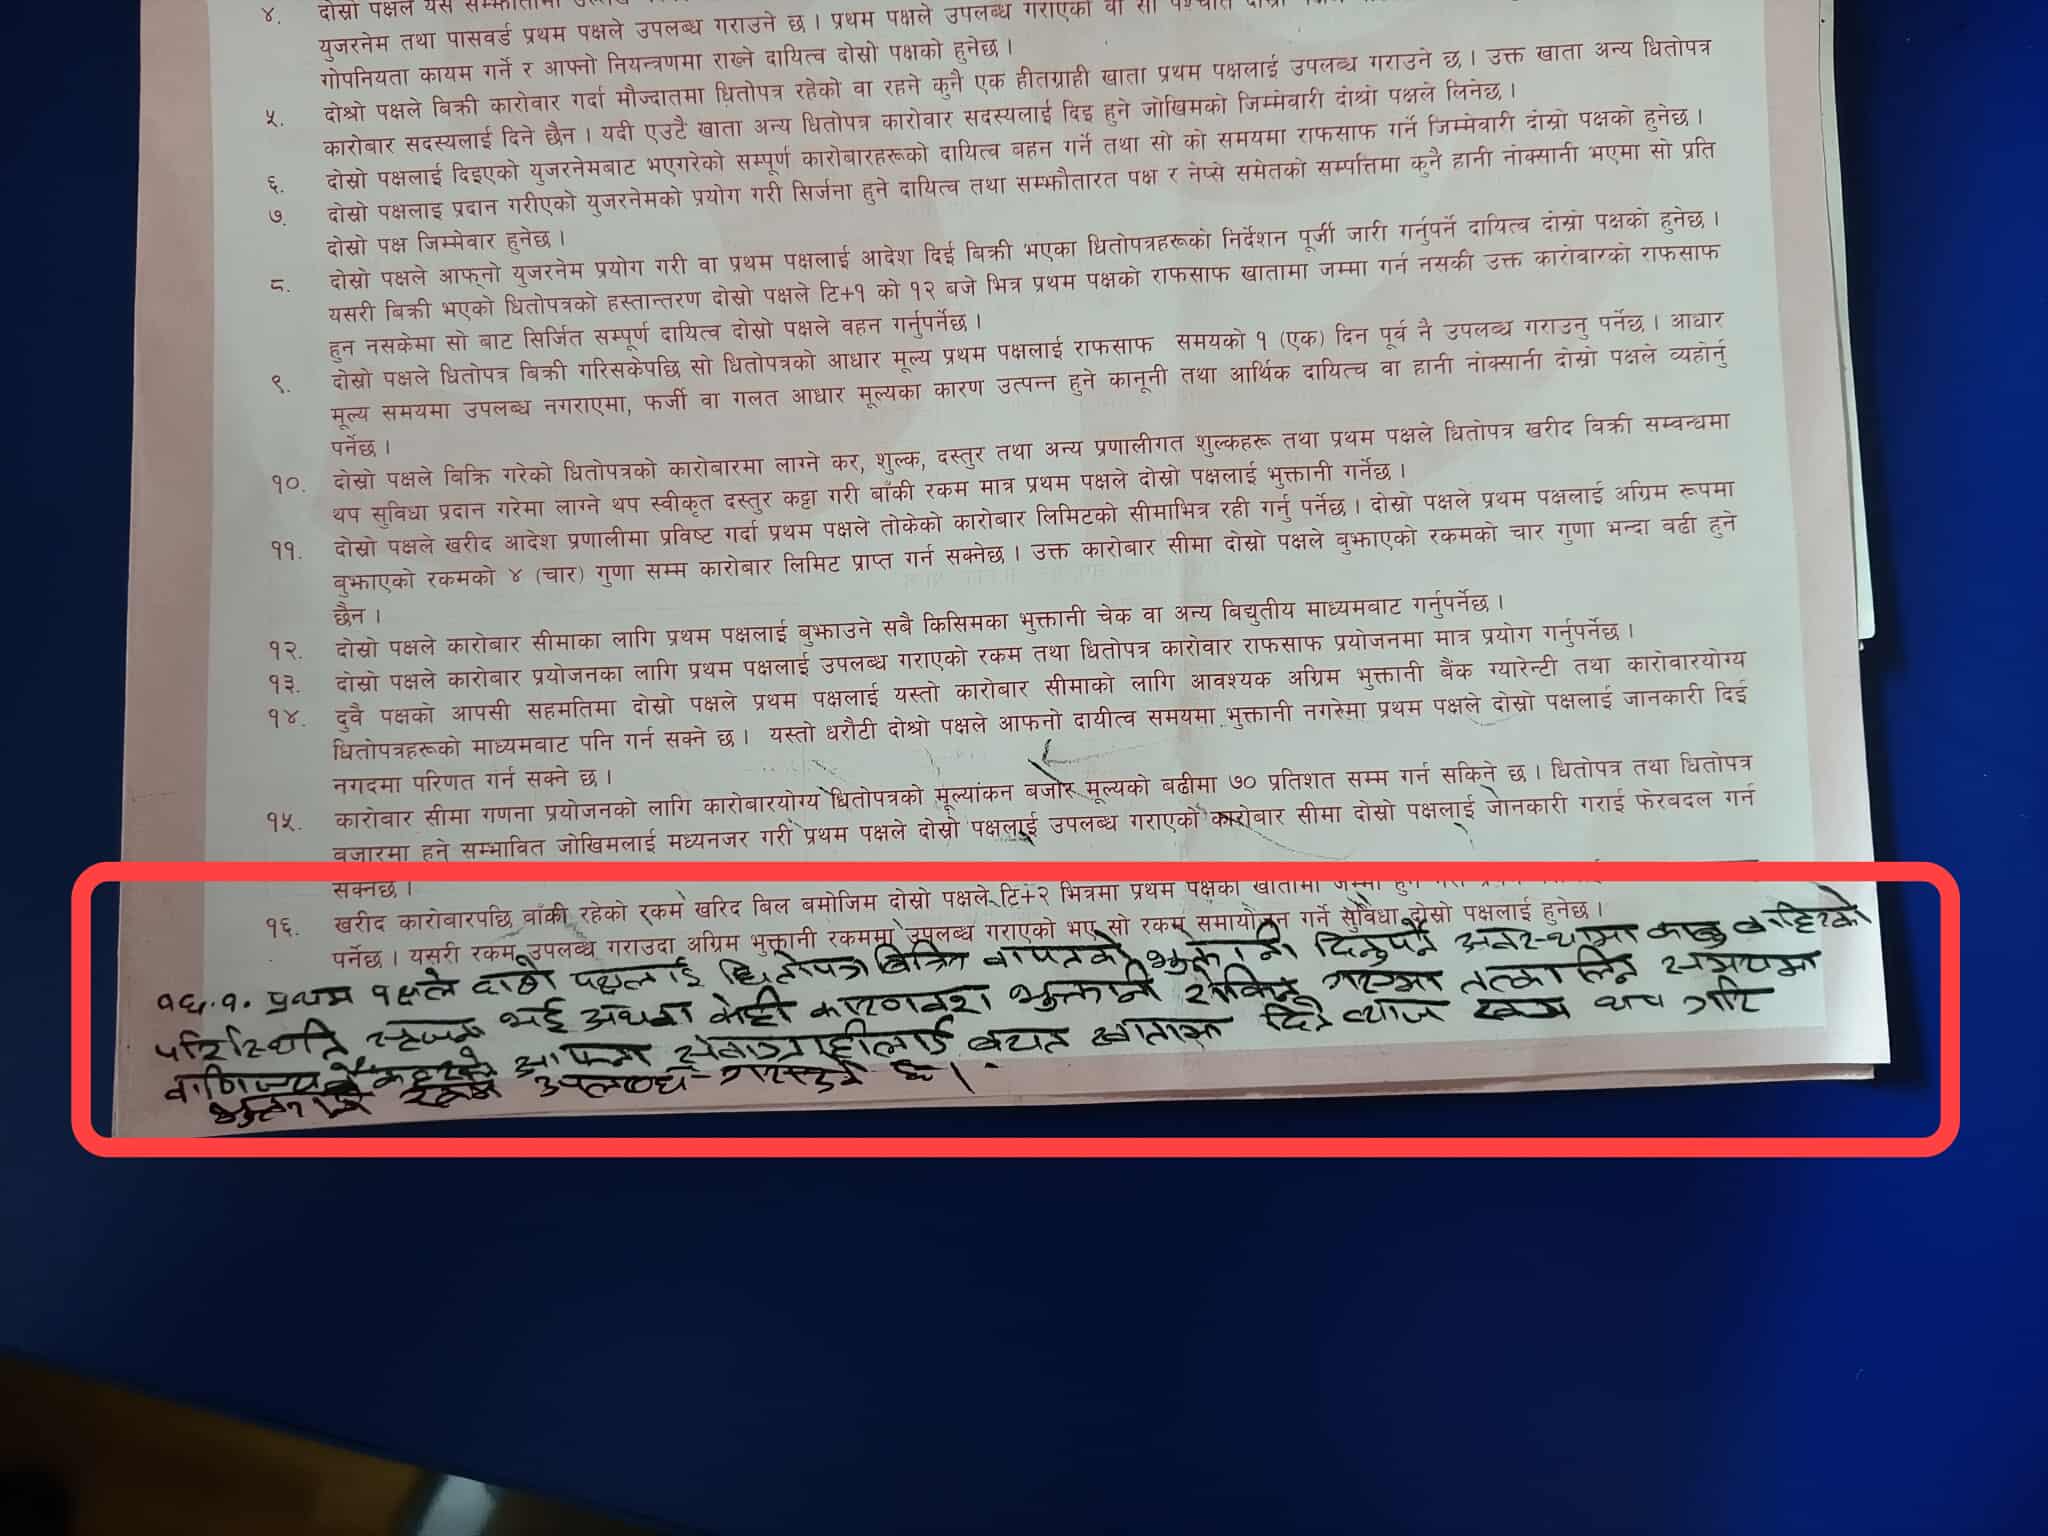 ४. दोस्रो पक्षले यस सम्झौतामा
युजरनेम तथा पासवर्ड प्रथम पक्षले उपलब्ध गराउने छ । प्रथम पक्षले उपलब्ध गराएको वा सो पश्चात
गोपनियता कायम गर्ने र आफ्नो नियन्त्रणमा राख्ने दायित्व दोस्रो पक्षको हुनेछ ।
५. दोश्रो पक्षले बिक्री कारोवार गर्दा मौज्दातमा धितोपत्र रहेको वा रहने कुनै एक हीतग्राही खाता प्रथम पक्षलाई उपलब्ध गराउने छ । उक्त खाता अन्य धितोपत्र
कारोबार सदस्यलाई दिने छैन । यदी एउटै खाता अन्य धितोपत्र कारोवार सदस्यलाई दिइ हुने जोखिमको जिम्मेवारी दोश्रो पक्षले लिनेछ ।
६. दोस्रो पक्षलाई दिइएको युजरनेमबाट भएगरेको सम्पूर्ण कारोबारहरूको दायित्व वहन गर्ने तथा सो को समयमा राफसाफ गर्ने जिम्मेवारी दोस्रो पक्षको हुनेछ ।
७. दोस्रो पक्षलाइ प्रदान गरीएको युजरनेमको प्रयोग गरी सिर्जना हुने दायित्व तथा सम्झौतारत पक्ष र नेप्से समेतको सम्पत्तिमा कुनै हानी नोक्सानी भएमा सो प्रति
दोस्रो पक्ष जिम्मेवार हुनेछ ।
८. दोस्रो पक्षले आफ्नो युजरनेम प्रयोग गरी वा प्रथम पक्षलाई आदेश दिई बिक्री भएका धितोपत्रहरूको निर्देशन पूर्जी जारी गर्नुपर्ने दायित्व दोस्रो पक्षको हुनेछ ।
यसरी बिक्री भएको धितोपत्रको हस्तान्तरण दोस्रो पक्षले टि+१ को १२ बजे भित्र प्रथम पक्षको राफसाफ खातामा जम्मा गर्न नसकी उक्त कारोवारको राफसाफ
हुन नसकेमा सो बाट सिर्जित सम्पूर्ण दायित्व दोस्रो पक्षले वहन गर्नुपर्नेछ ।
९. दोस्रो पक्षले धितोपत्र बिक्री गरिसकेपछि सो धितोपत्रको आधार मूल्य प्रथम पक्षलाई राफसाफ समयको १ (एक) दिन पूर्व नै उपलब्ध गराउनु पर्नेछ । आधार
मूल्य समयमा उपलब्ध नगराएमा, फर्जी वा गलत आधार मूल्यका कारण उत्पन्न हुने कानूनी तथा आर्थिक दायित्व वा हानी नोक्सानी दोस्रो पक्षले व्यहोर्नु
पर्नेछ ।
१०. दोस्रो पक्षले बिक्रि गरेको धितोपत्रको कारोबारमा लाग्ने कर, शुल्क, दस्तुर तथा अन्य प्रणालीगत शुल्कहरू तथा प्रथम पक्षले धितोपत्र खरीद बिक्री सम्वन्धमा
थप सुविधा प्रदान गरेमा लाग्ने थप स्वीकृत दस्तुर कट्टा गरी बाँकी रकम मात्र प्रथम पक्षले दोस्रो पक्षलाई भुक्तानी गर्नेछ ।
११. दोस्रो पक्षले खरीद आदेश प्रणालीमा प्रविष्ट गर्दा प्रथम पक्षले तोकेको कारोबार लिमिटको सीमाभित्र रही गर्नु पर्नेछ । दोस्रो पक्षले प्रथम पक्षलाई अग्रिम रूपमा
बुझाएको रकमको ४ (चार) गुणा सम्म कारोबार लिमिट प्राप्त गर्न सक्नेछ । उक्त कारोबार सीमा दोस्रो पक्षले बुझाएको रकमको चार गुणा भन्दा वढी हुने
छैन ।
१२. दोस्रो पक्षले कारोबार सीमाका लागि प्रथम पक्षलाई बुझाउने सबै किसिमका भुक्तानी चेक वा अन्य बिद्युतीय माध्यमबाट गर्नुपर्नेछ ।
१३. दोस्रो पक्षले कारोबार प्रयोजनका लागि प्रथम पक्षलाई उपलब्ध गराएको रकम तथा धितोपत्र कारोवार राफसाफ प्रयोजनमा मात्र प्रयोग गर्नुपर्नेछ ।
१४. दुवै पक्षको आपसी सहमतिमा दोस्रो पक्षले प्रथम पक्षलाई यस्तो कारोबार सीमाको लागि आवश्यक अग्रिम भुक्तानी बैंक ग्यारेन्टी तथा कारोवारयोग्य
धितोपत्रहरूको माध्यमवाट पनि गर्न सक्ने छ । यस्तो धरौटी दोश्रो पक्षले आफनो दायीत्व समयमा भुक्तानी नगरेमा प्रथम पक्षले दोस्रो पक्षलाई जानकारी दिई
नगदमा परिणत गर्न सक्ने छ ।
१५. कारोबार सीमा गणना प्रयोजनको लागि कारोबारयोग्य धितोपत्रको मूल्यांकन बजार मूल्यको बढीमा ७० प्रतिशत सम्म गर्न सकिने छ । धितोपत्र तथा धितोपत्र
बजारमा हुने सम्भावित जोखिमलाई मध्यनजर गरी प्रथम पक्षले दोस्रो पक्षलाई उपलब्ध गराएको कारोबार सीमा दोस्रो पक्षलाई जानकारी गराई फेरबदल गर्न
सक्नेछ ।
१६. खरीद कारोबारपछि वाँकी रहेको रकम खरिद बिल बमोजिम दोस्रो पक्षले टि+२ भित्रमा प्रथम पक्षको खातामा जम्मा
पर्नेछ । यसरी रकम उपलब्ध गराउदा अग्रिम भुक्तानी रकममा उपलब्ध गराएको भए सो रकम समायोजन गर्ने सुविधा दोस्रो पक्षलाई हुनेछ ।
१६.१. प्रथम पक्षले दोस्रो पक्षलाई धितोपत्र बिक्रि वापतको भुक्तानी दिनुपर्ने अवस्थामा काबु बाहिरको
परिस्थिति सृजना भई अथवा केही कारणवश भुक्तानी रोकिन गएमा तत्कालिन समयमा
वाणिज्य बैंकहरुले आफ्ना सेवाग्राहीलाई बचत खातामा दिने ब्याज रकम थप गरि
भुक्तानी रकम उपलब्ध गराउने छ ।